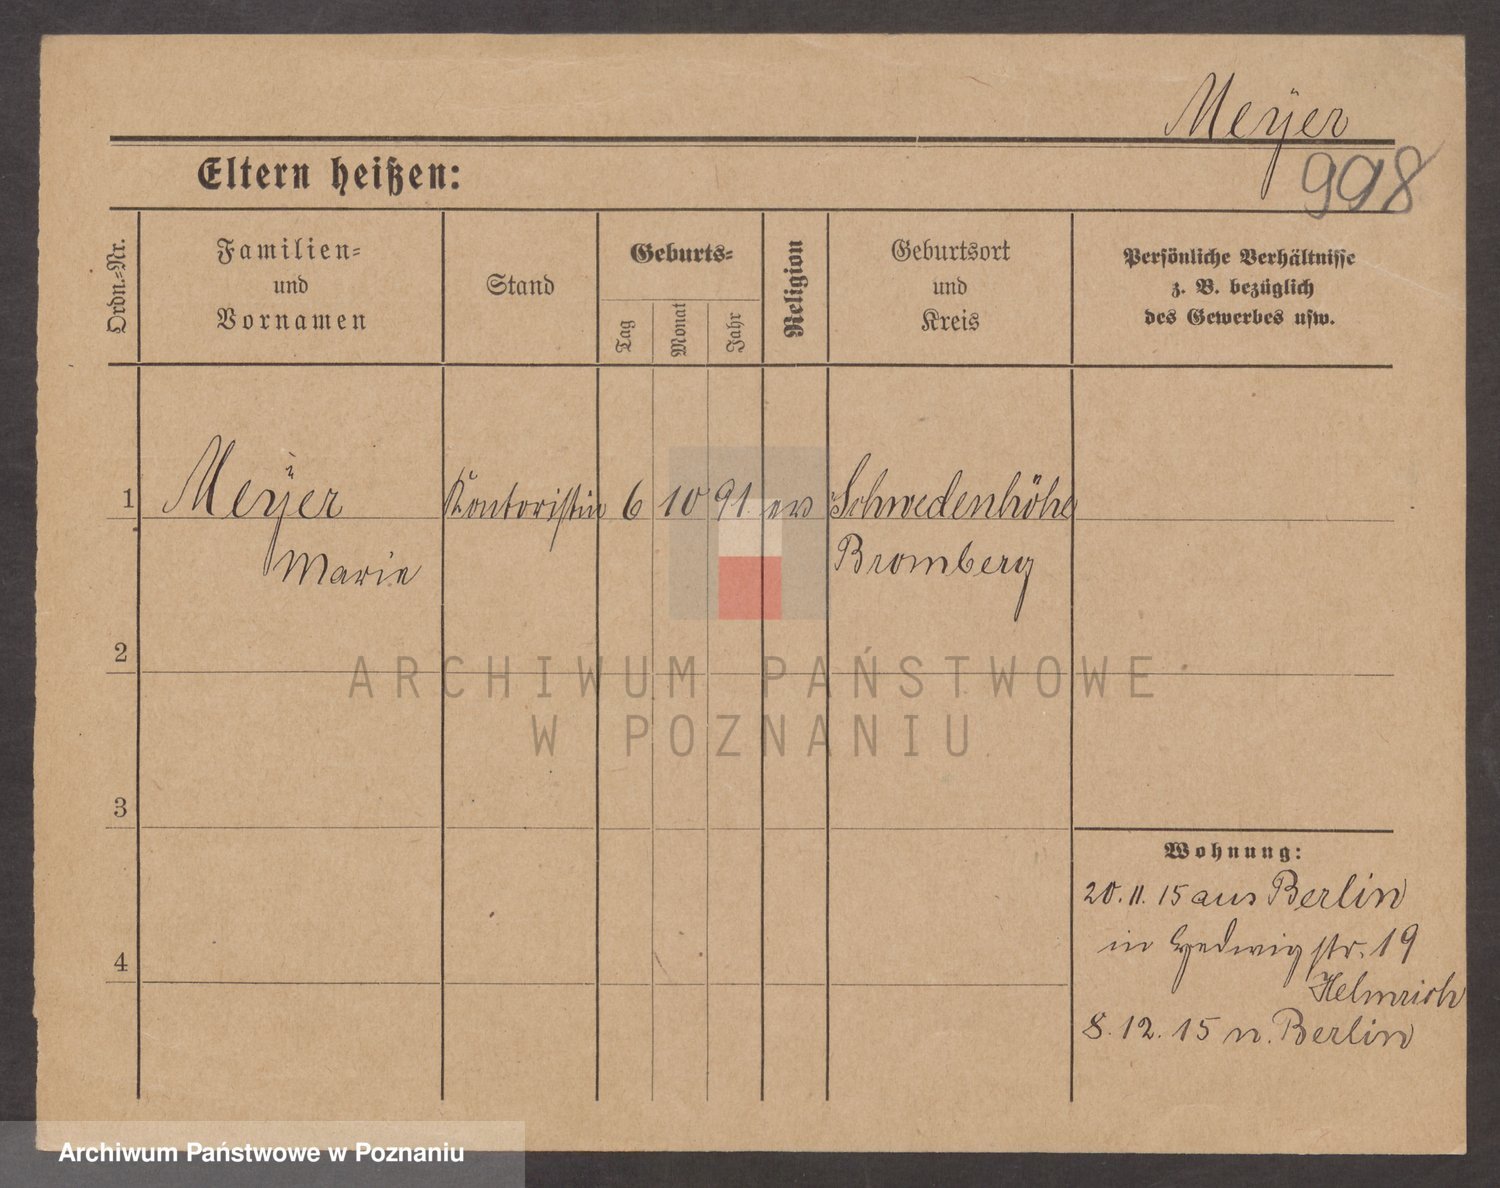 Meÿer
998
Eltern heißen:
Ordn.=Nr.
Familien=
und
Vornamen
Stand
Geburts=
Tag
Monat
Jahr
Religion
Geburtsort
und
Kreis
Persönliche Verhältnisse
z. B. bezüglich
des Gewerbes usw.
1 Meÿer Kontoristin 6 10 91. ev Schwedenhöhe
Marie Bromberg
2
3
4
Wohnung:
20. 11. 15 aus Berlin
in Hedwigstr. 19
Helmrich
8. 12. 15 n. Berlin
ARCHIWUM PAŃSTWOWE
W POZNANIU
Archiwum Państwowe w Poznaniu